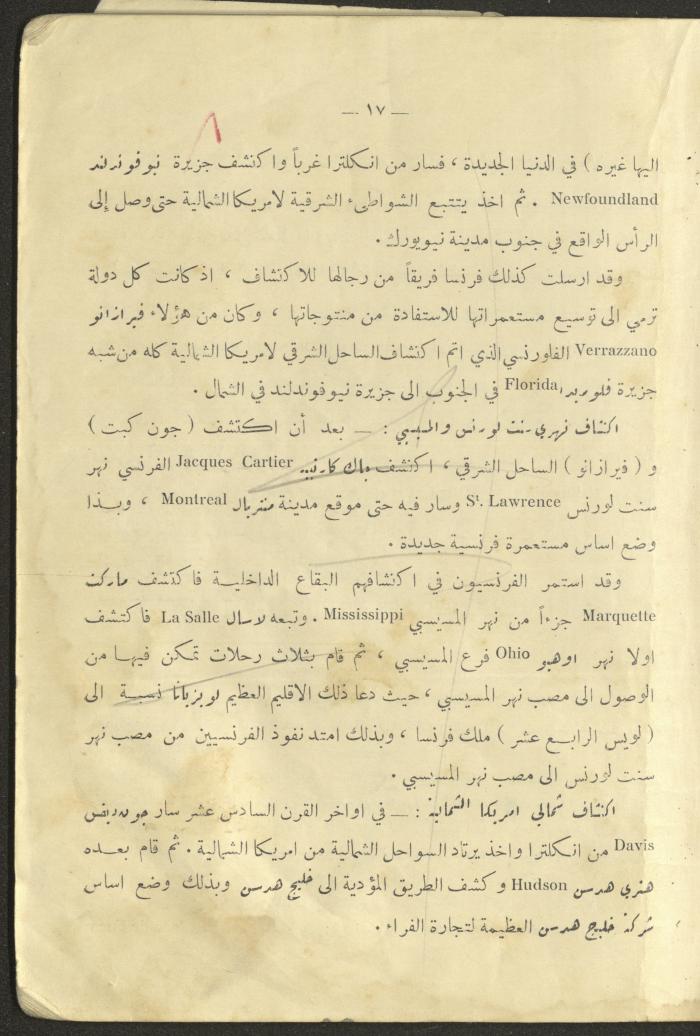 — ١٧ —
اليها غيره ) في الدنيا الجديدة ، فسار من انكلترا غرباً واكتشف جزيرة نيوفوندلند
Newfoundland . ثم اخذ يتتبع الشواطىء الشرقية لامريكا الشمالية حتى وصل إلى
الرأس الواقع في جنوب مدينة نيويورك .
وقد ارسلت كذلك فرنسا فريقاً من رجالها للاكتشاف ، اذ كانت كل دولة
ترمي الى توسيع مستعمراتها للاستفادة من منتوجاتها ، وكان من هؤلاء فيرازانو
Verrazzano الفلورنسي الذي اتم اكتشاف الساحل الشرقي لامريكا الشمالية كله من شبه
جزيرة فلوريدا Florida في الجنوب الى جزيرة نيوفوندلند في الشمال .
اكتشاف نهري سنت لورنس والمسيسبي : — بعد أن اكتشف ( جون كبت )
و ( فيرازانو ) الساحل الشرقي ، اكتشف جاك كارتييه Jacques Cartier الفرنسي نهر
سنت لورنس St. Lawrence وسار فيه حتى موقع مدينة منتريال Montreal ، وبذا
وضع اساس مستعمرة فرنسية جديدة .
وقد استمر الفرنسيون في اكتشافهم البقاع الداخلية فاكتشف ماركت
Marquette جزءاً من نهر المسيسبي Mississippi . وتبعه لاسال La Salle فاكتشف
اولا نهر اوهيو Ohio فرع المسيسبي ، ثم قام بثلاث رحلات تمكن فيها من
الوصول الى مصب نهر المسيسبي ، حيث دعا ذلك الاقليم العظيم لويزيانا نسبة الى
( لويس الرابع عشر ) ملك فرنسا ، وبذلك امتد نفوذ الفرنسيين من مصب نهر
سنت لورنس الى مصب نهر المسيسبي .
اكتشاف شمالي امريكا الشمالية : — في اواخر القرن السادس عشر سار جون ديفس
Davis من انكلترا واخذ يرتاد السواحل الشمالية من امريكا الشمالية . ثم قام بعده
هنري هدسن Hudson وكشف الطريق المؤدية الى خليج هدسن وبذلك وضع اساس
شركة خليج هدسن العظيمة لتجارة الفراء .